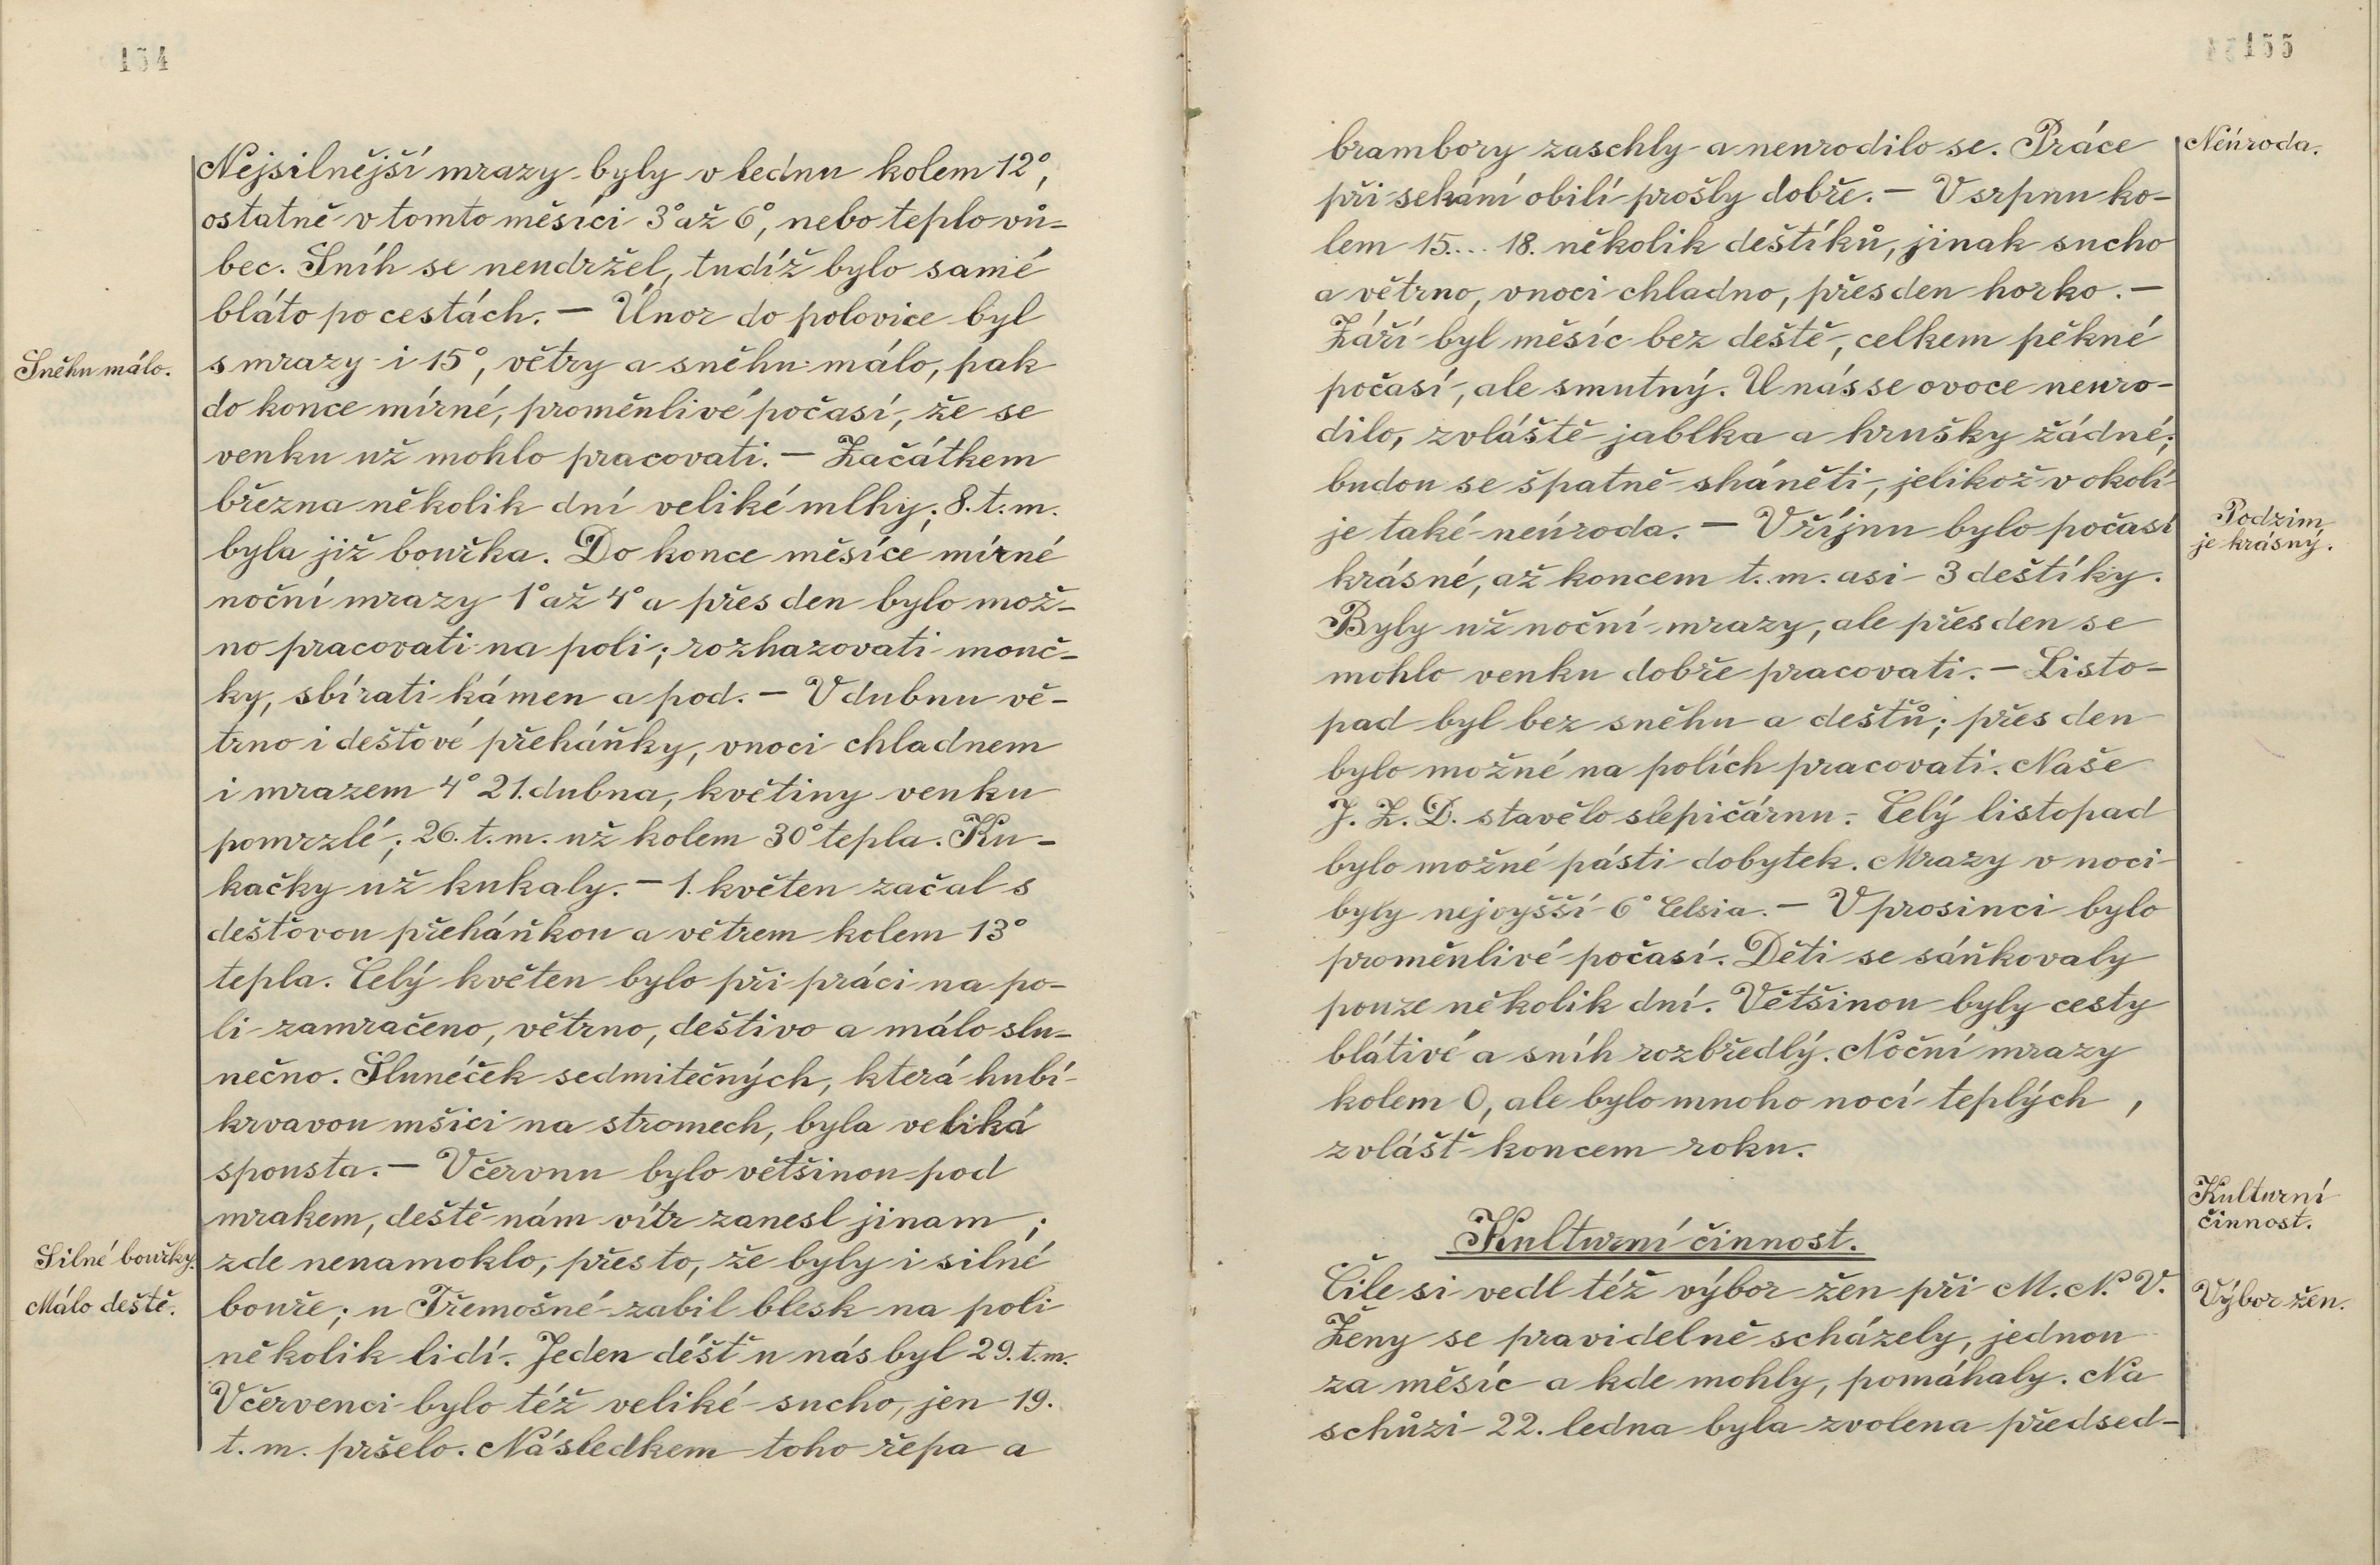 154
Nejsilnější mrazy byly v lednu kolem 12°,
ostatně v tomto měsíci 3° až 6°, nebo teplo vů-
bec. Sníh se neudržel, tudíž bylo samé
bláto po cestách. — Únor do polovice byl
Sněhu málo.
s mrazy i 15°, větry a sněhu málo, pak
do konce mírné, proměnlivé počasí, že se
venku už mohlo pracovati. — Začátkem
března několik dní veliké mlhy; 8. t. m.
byla již bouřka. Do konce měsíce mírné
noční mrazy 1° až 4° a přes den bylo mož-
no pracovati na poli; rozhazovati mouč-
ky, sbírati kámen a pod. — V dubnu vě-
trno i dešťové přeháňky, v noci chladnem
i mrazem 4° 21. dubna, květiny venku
pomrzlé; 26. t. m. už kolem 30° tepla. Ku-
kačky už kukaly. — 1. květen začal s
dešťovou přeháňkou a větrem kolem 13°
tepla. Celý květen bylo při práci na po-
li zamračeno, větrno, deštivo a málo slu-
nečno. Sluneček sedmitečných, která hubí
krvavou mšici na stromech, byla veliká
spousta. — V červnu bylo většinou pod
mrakem, deště nám vítr zanesl jinam;
Silné bouřky.
zde nenamoklo, přesto, že byly i silné
Málo deště.
bouře; u Třemošné zabil blesk na poli
několik lidí. Jeden déšť u nás byl 29. t. m.
V červenci bylo též veliké sucho, jen 19.
t. m. pršelo. Následkem toho řepa a
155
brambory zaschly a neurodilo se. Práce
Neúroda.
při sekání obilí prošly dobře. — V srpnu ko-
lem 15... 18. několik deštíků, jinak sucho
a větrno, v noci chladno, přes den horko. —
Září byl měsíc bez deště, celkem pěkné
počasí, ale smutný. U nás se ovoce neuro-
dilo, zvláště jablka a hrušky žádné;
budou se špatně sháněti, jelikož v okolí
je také neúroda. — V říjnu bylo počasí
Podzim
je krásný.
krásné, až koncem t. m. asi 3 deštíky.
Byly už noční mrazy, ale přes den se
mohlo venku dobře pracovati. — Listo-
pad byl bez sněhu a dešťů; přes den
bylo možné na polích pracovati. Naše
J. Z. D. stavělo slepičárnu. Celý listopad
bylo možné pásti dobytek. Mrazy v noci
byly nejvyšší 6° Celsia. — V prosinci bylo
proměnlivé počasí. Děti se sáňkovaly
pouze několik dní. Většinou byly cesty
blátivé a sníh rozbředlý. Noční mrazy
kolem 0, ale bylo mnoho nocí teplých,
zvlášť koncem roku.
Kulturní
činnost.
Kulturní činnost.
Čile si vedl též výbor žen při M. N. V.
Výbor žen.
Ženy se pravidelně scházely, jednou
za měsíc a kde mohly, pomáhaly. Na
schůzi 22. ledna byla zvolena předsed-